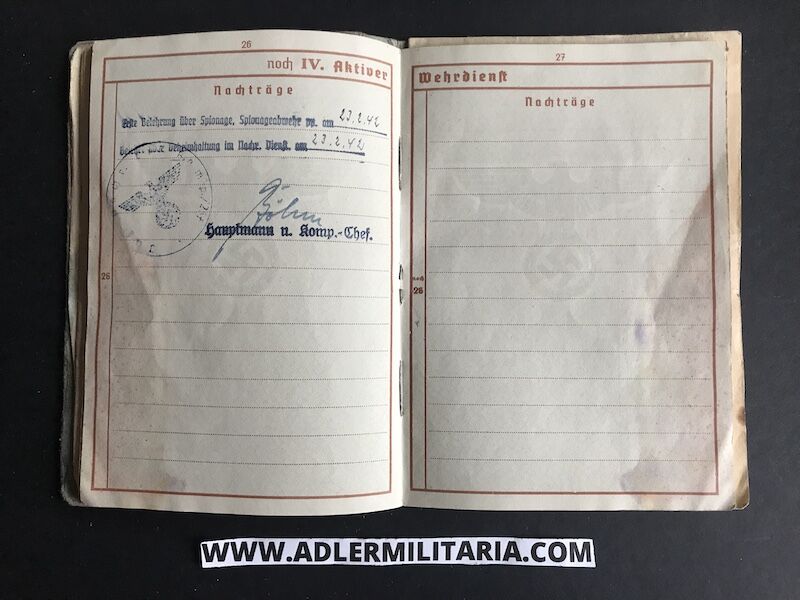 26
noch IV. Aktiver
Nachträge
Belehrung über Spionage, Spionageabwehr pp. am 23.2.42
über Geheimhaltung im Nachr. Dienst. am 23.2.42
Böhm
Hauptmann u. Komp.-Chef.
26
27
Wehrdienst
Nachträge
noch
26
WWW.ADLERMILITARIA.COM